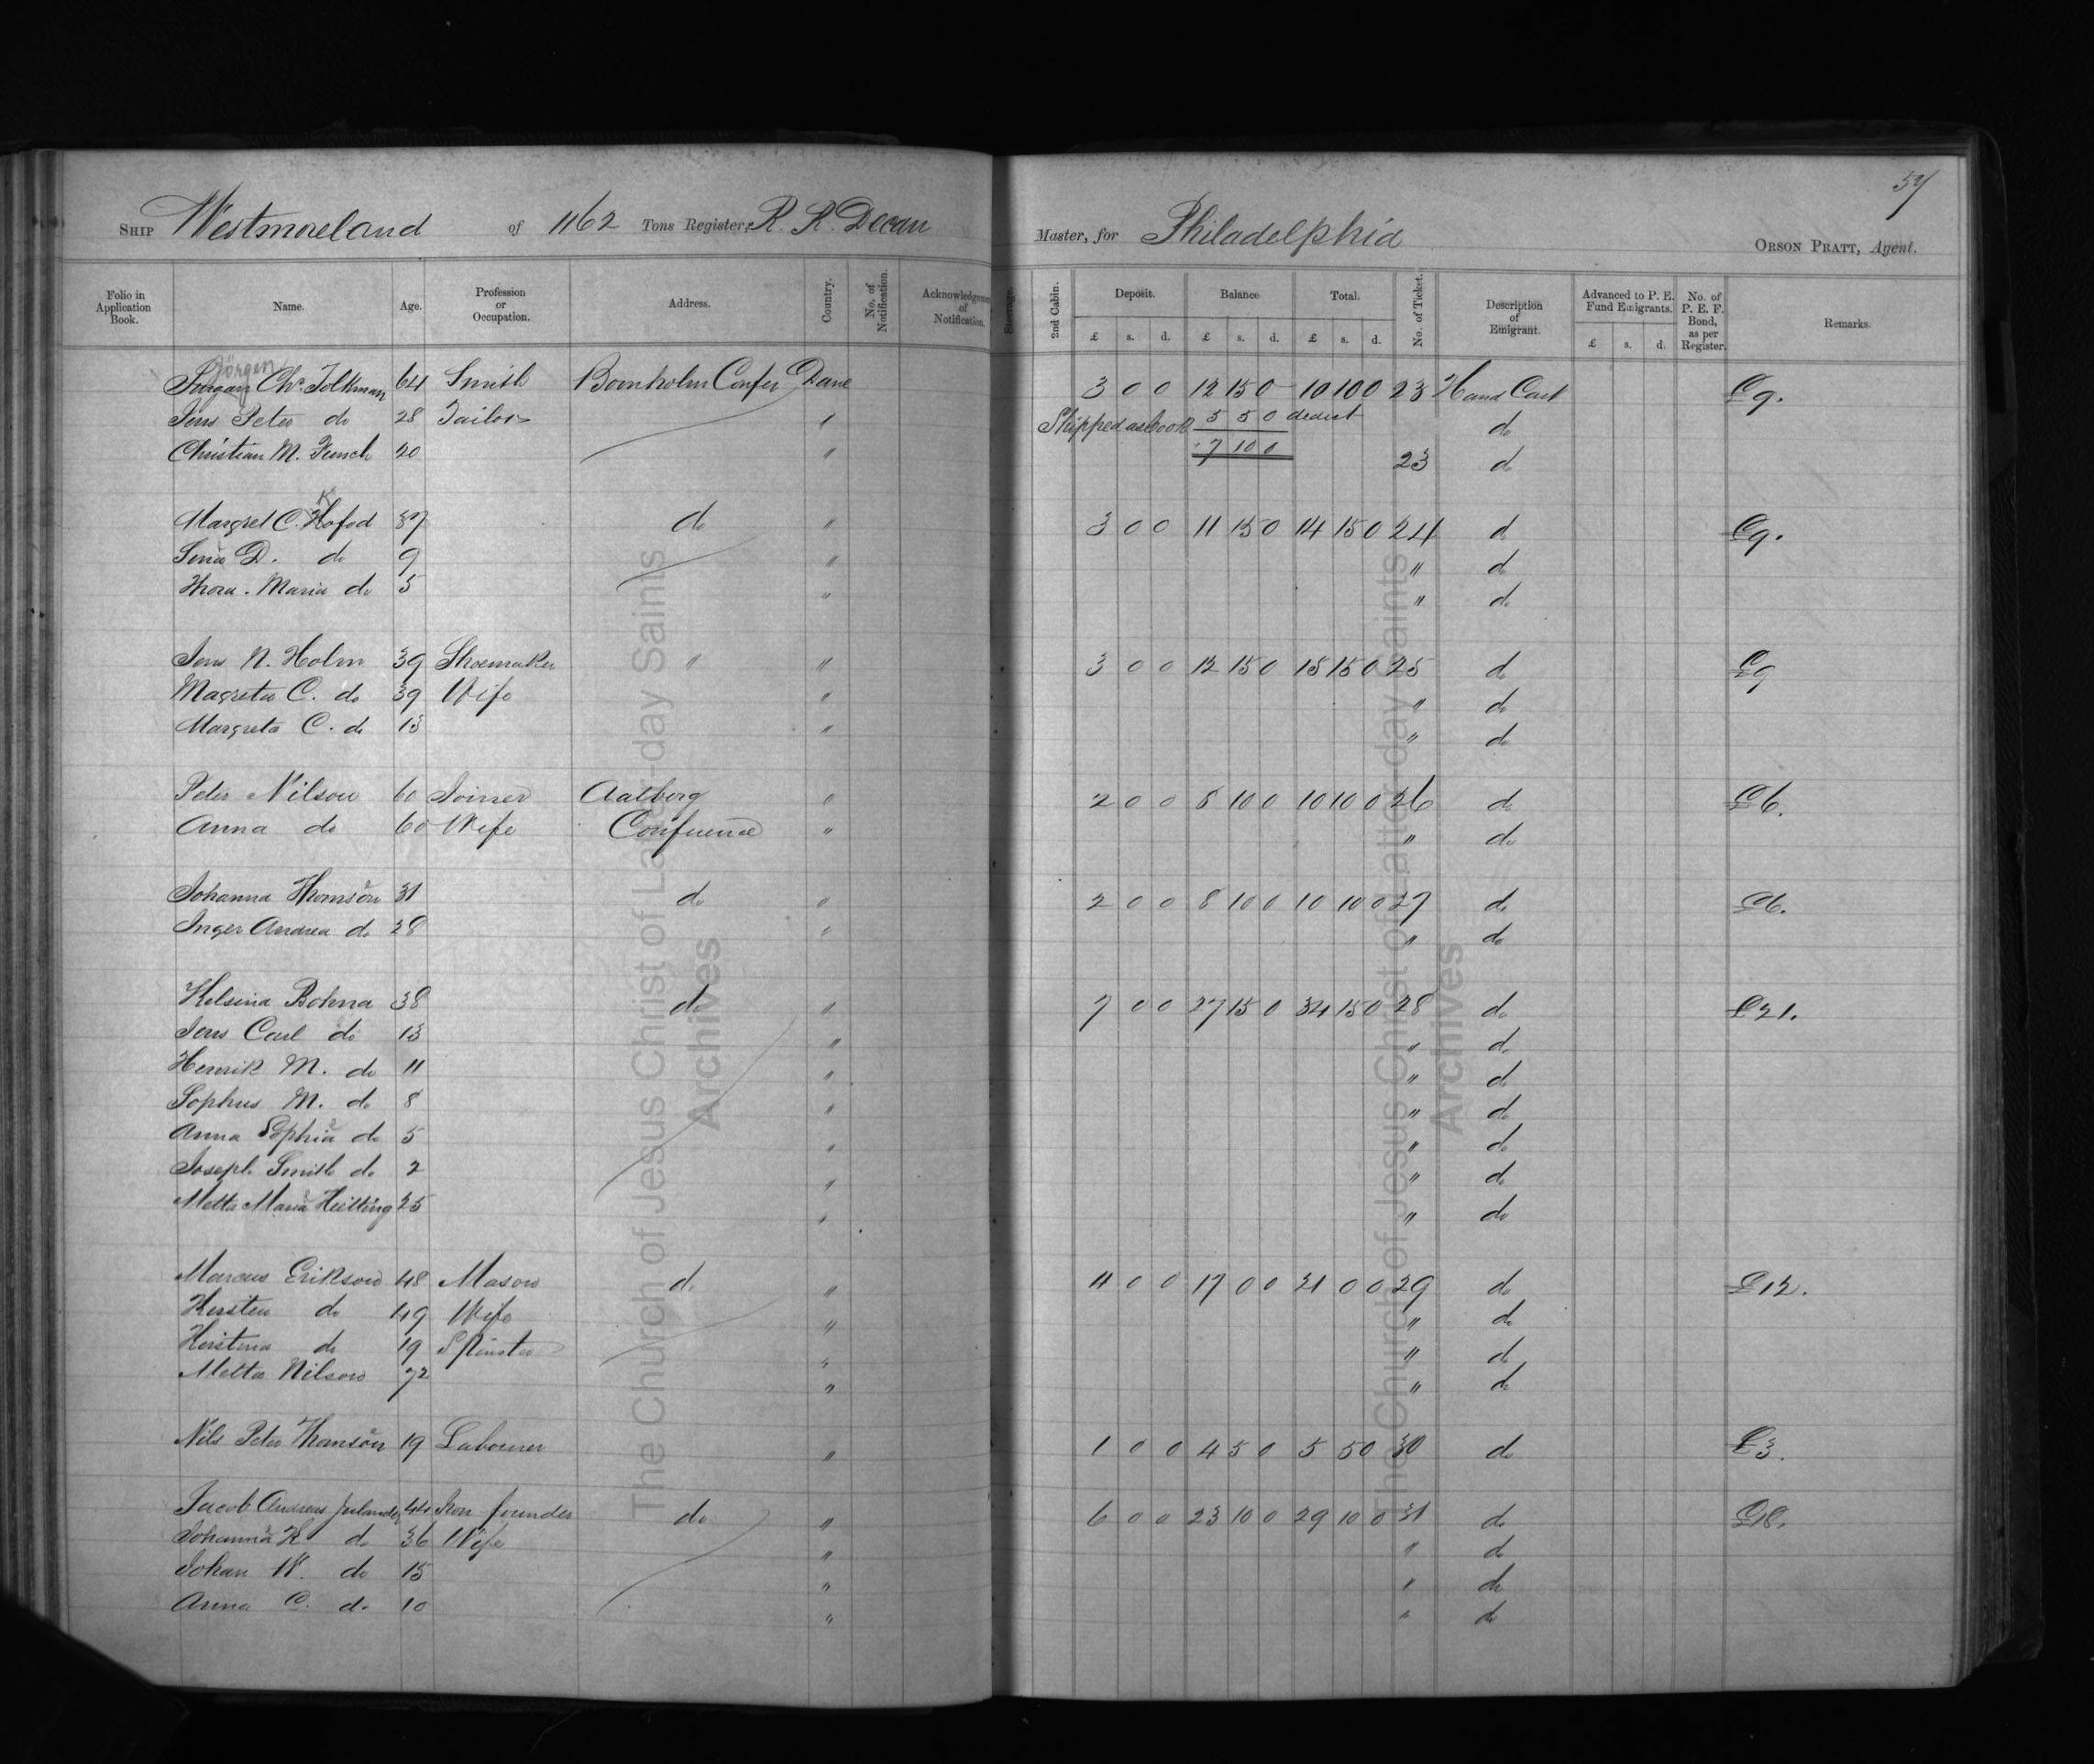 57
SHIP Westmoreland of 1162 Tons Register, R. R. Decan Master, for Philadelphia ORSON PRATT, Agent.
Folio in Application Book. Name. Age. Profession or Occupation. Address. Country. No. of Notification. Acknowledgment of Notification. Steerage. 2nd Cabin. Deposit. Balance. Total. No. of Ticket. Description of Emigrant. Advanced to P. E. Fund Emigrants. No. of P. E. F. Bond, as per Register. Remarks.
£ s. d. £ s. d. £ s. d. £ s. d.
Jörgen
Jurgan Chr. Folkman 64 Smith Bornholm Confer Dane 3 0 0 12 15 0 10 10 0 23 Hand Cart £9.
Jens Peter do 28 Tailor " Shipped as cook 5 5 0 deduct do
Christian M. Funch 20 " 7 10 0 23 do
K
Margret C. Hofod 37 do " 3 0 0 11 15 0 14 15 0 24 do £9.
Sena D. do 9 " " do
Thora Maria do 5 " " do
Jens N. Holm 39 Shoemaker " " 3 0 0 12 15 0 15 15 0 25 do £9
Magreta C. do 39 Wife " " do
Margreta C. do 13 " " do
Peter Nilson 60 Joiner Aalborg " 2 0 0 8 10 0 10 10 0 26 do £6.
Anna do 60 Wife Confuence " " do
Johanna Thomson 31 do " 2 0 0 8 10 0 10 10 0 27 do £6.
Inger Andrea do 28 " " do
Kelsina Bohna 38 do " 7 0 0 27 15 0 34 15 0 28 do £21.
Jens Carl do 13 " " do
Henrik M. do 11 " " do
Sophus M. do 8 " " do
Anna Sophia do 5 " " do
Joseph Smith do 2 " " do
Metta Maria 25 " " do
Marcus Erikson 48 Mason do " 4 0 0 17 0 0 21 0 0 29 do £12.
Kersten do 49 Wife " " do
Kerstena do 19 Spinster " " do
Metta Nilson 72 " " do
Nils Peter Thomson 19 Labourer " 1 0 0 4 5 0 5 5 0 30 do £3.
Jacob Andreas Julander 44 Iron founder do " 6 0 0 23 10 0 29 10 0 31 do £18.
Johanna K do 36 Wife " " do
Johan W. do 15 " " do
Anna C. do 10 " " do
The Church of Jesus Christ of Latter-day Saints
Archives
The Church of Jesus Christ of Latter-day Saints
Archives